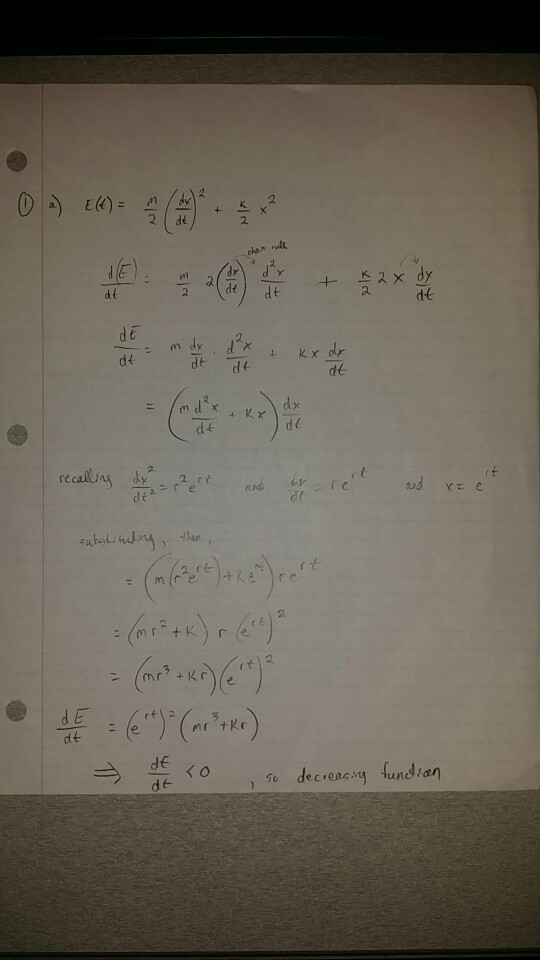 ① a) E(t) = m/2 (dx/dt)² + k/2 x²
chain rule
d(E)/dt = m/2 2(dx/dt) d²x/dt + k/2 2x dx/dt
dE/dt = m dx/dt · d²x/dt + kx dx/dt
= (m d²x/dt + kx) dx/dt
recalling dx²/dt² = r²e^rt and dx/dt = re^rt and x = e^rt
substituting, then,
= (m(r²e^rt) + ke^rt) re^rt
= (mr² + k) r (e^rt)²
= (mr³ + kr)(e^rt)²
dE/dt = (e^rt)² (mr³ + kr)
⇒ dE/dt < 0, so decreasing function